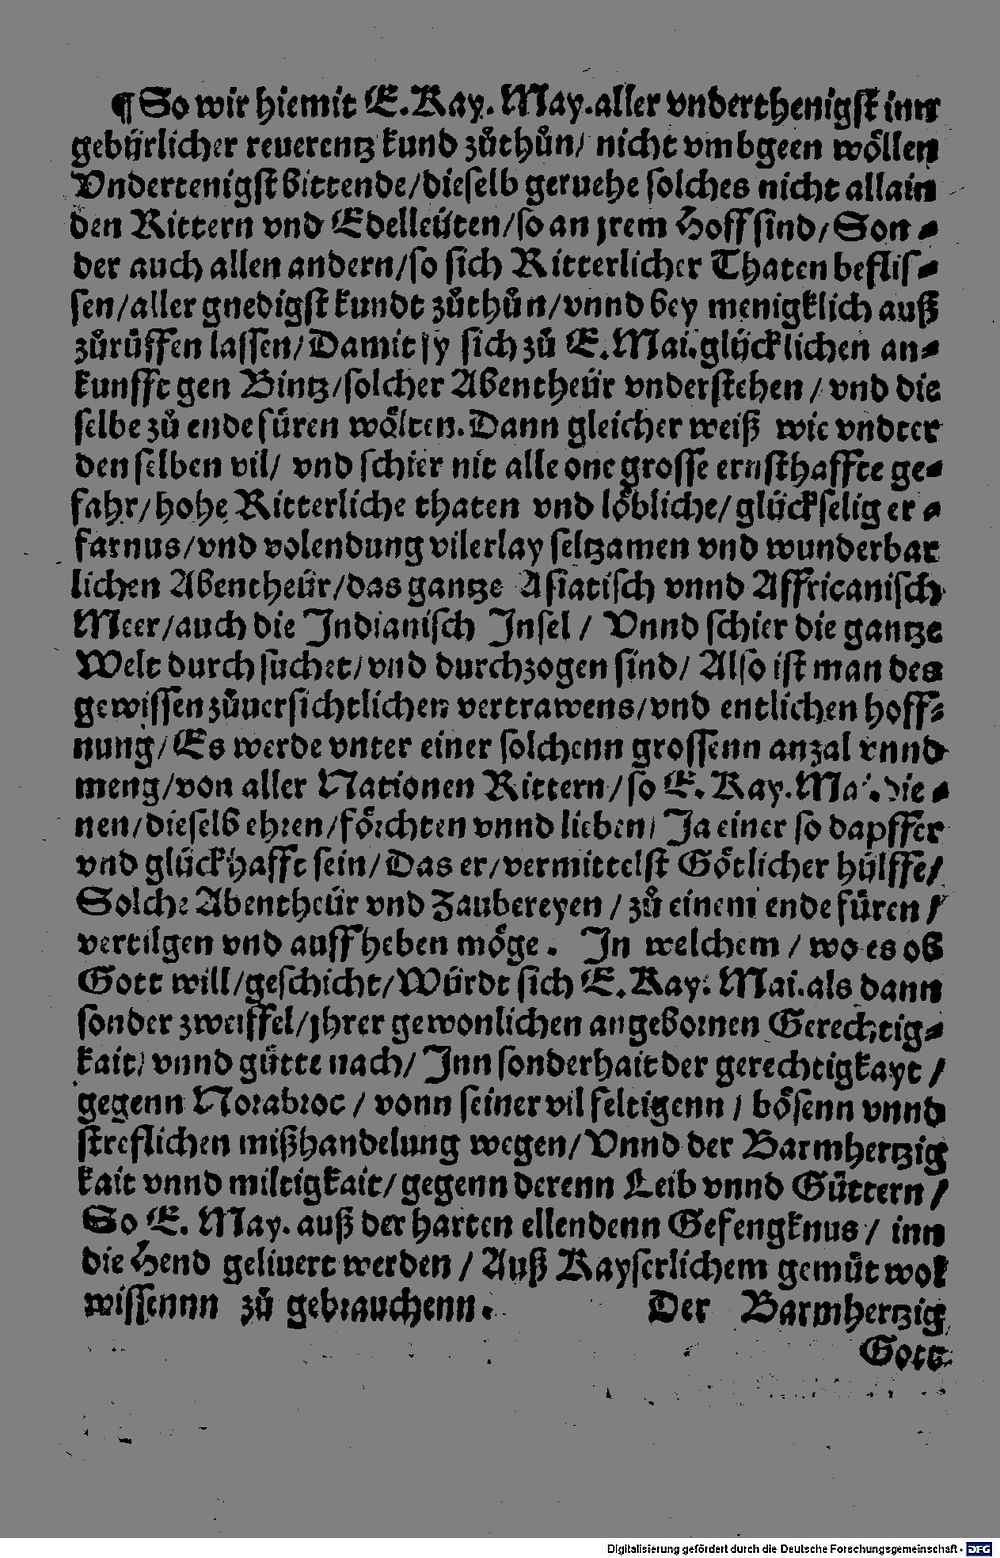 ¶ So wir hiemit E. Kay. May. aller vnderthenigst inn
gebürlicher reuerentz kund zůthůn / nicht vmbgeen wöllen
Vndertenigst bittende / dieselb geruehe solches nicht allain
den Rittern vnd Edelleüten / so an jrem Hoff sind / Son⸗
der auch allen andern / so sich Ritterlicher Thaten beflis⸗
sen / aller gnedigst kundt zůthůn / vnnd bey menigklich auß
zůrüffen lassen / Damit sy sich zů E. Mai. glücklichen an⸗
kunfft gen Bintz / solcher Abentheür vnderstehen / vnd die
selbe zů ende füren wölten. Dann gleicher weiß wie vndter
den selben vil / vnd schier nit alle one grosse ernsthaffte ge⸗
fahr / hohe Ritterliche thaten vnd löbliche / glückselig er⸗
farnus / vnd volendung vilerlay seltzamen vnd wunderbar
lichen Abentheür / das gantze Asiatisch vnnd Affricanisch
Meer / auch die Indianisch Insel / Vnnd schier die gantze
Welt durch suchet / vnd durchzogen sind / Also ist man des
gewissen zůuersichtlichen vertrawens / vnd entlichen hoff⸗
nung / Es werde vnter einer solchenn grossenn anzal vnnd
meng / von aller Nationen Rittern / so E. Kay. Mai. die⸗
nen / dieselb ehren / förchten vnnd lieben / Ja einer so dapffer
vnd glückhafft sein / Das er / vermittelst Götlicher hülffe /
Solche Abentheür vnd Zaubereyen / zů einem ende füren /
vertilgen vnd auffheben möge. In welchem / wo es ob
Gott will / geschicht / Würdt sich E. Kay. Mai. als dann
sonder zweiffel / jhrer gewonlichen angebornen Gerechtig⸗
kait / vnnd gütte nach / Inn sonderhait der gerechtigkayt /
gegenn Norabroc / vonn seiner vilfeltigenn / bösenn vnnd
streflichen mißhandelung wegen / Vnnd der Barmhertzig
kait vnnd miltigkait / gegenn derenn Leib vnnd Güttern /
So E. May. auß der harten ellendenn Gefengknus / inn
die Hend geliuert werden / Auß Kayserlichem gemüt wol
wissennn zů gebrauchenn. Der Barmhertzig
Gott
Digitalisierung gefördert durch die Deutsche Forschungsgemeinschaft - DFG